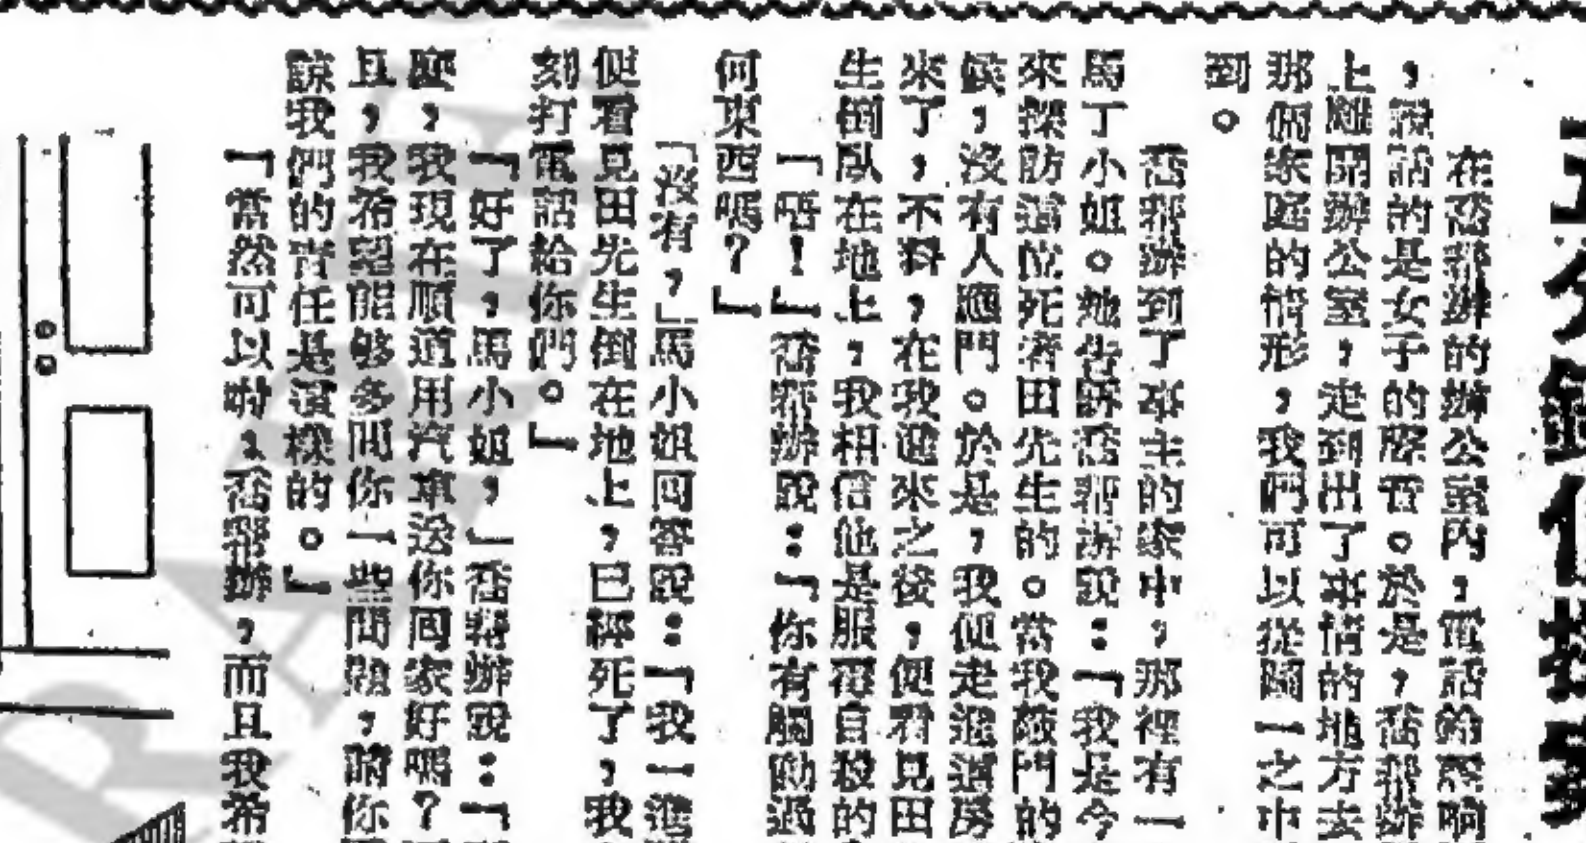 五分鐘偵探案
在喬幇辦的辦公室內，電話鈴響响
，說話的是女子的聲音。於是，喬幇辦
上離開辦公室，走到出了事情的地方去
那個家庭的情形，我們可以從圖一之中
到。
喬幇辦到了事主的家中，那裡有一
馬丁小姐。她告訴喬幇辦說：「我是今
來探訪這位死者田先生的。當我敲門的
候，沒有人應門。於是，我便走進這房
來了，不料，在我進來之後，便看見田
生倒臥在地上，我相信他是服毒自殺的
「唔！」喬幇辦說：「你有觸動過
何東西嗎？」
「沒有，」馬小姐回答說：「我一進
便看見田先生倒在地上，已經死了，我
刻打電話給你們。」
「好了，馬小姐，」喬幇辦說：「
麼，我現在順道用汽車送你回家好嗎？
且，我希望能够多問你一些問題，請你
諒我們的責任是這樣的。」
「當然可以喲，喬幇辦，而且我希